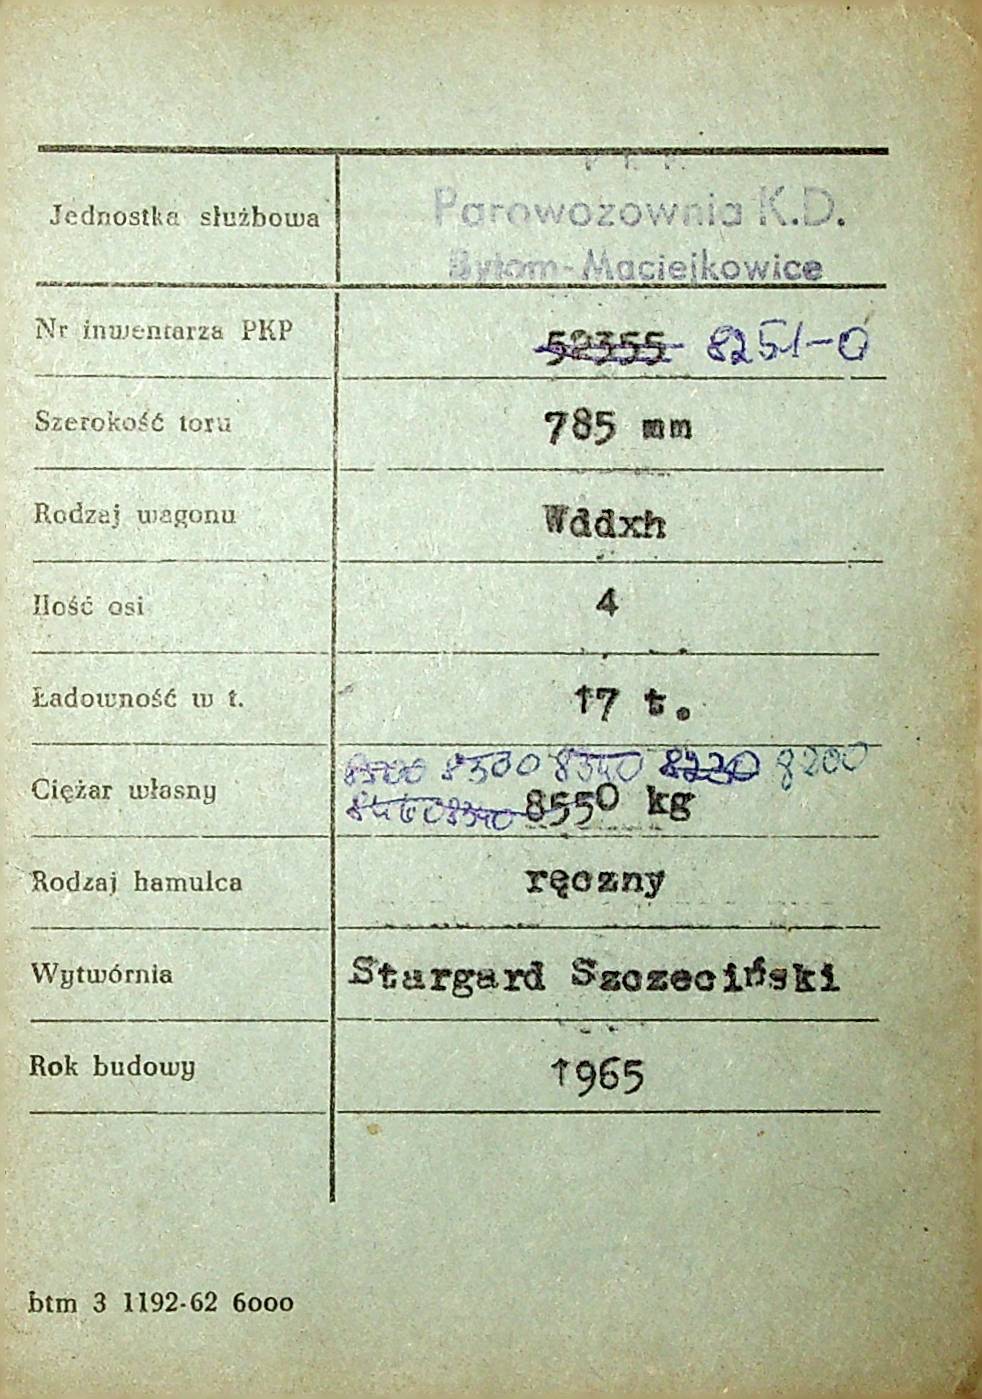 P. K. P.
Jednostka służbowa Parowozownia K.D.
Bytom-Maciejkowice
Nr inwentarza PKP 52355 8251-0
Szerokość toru 785 mm
Rodzaj wagonu Wddxh
Ilość osi 4
Ładowność w t. 17 t.
8500 8300 8340 8220 8200
Ciężar własny 8460 8340 8550 kg
Rodzaj hamulca ręczny
Wytwórnia Stargard Szczeciński
Rok budowy 1965
btm 3 1192-62 6000